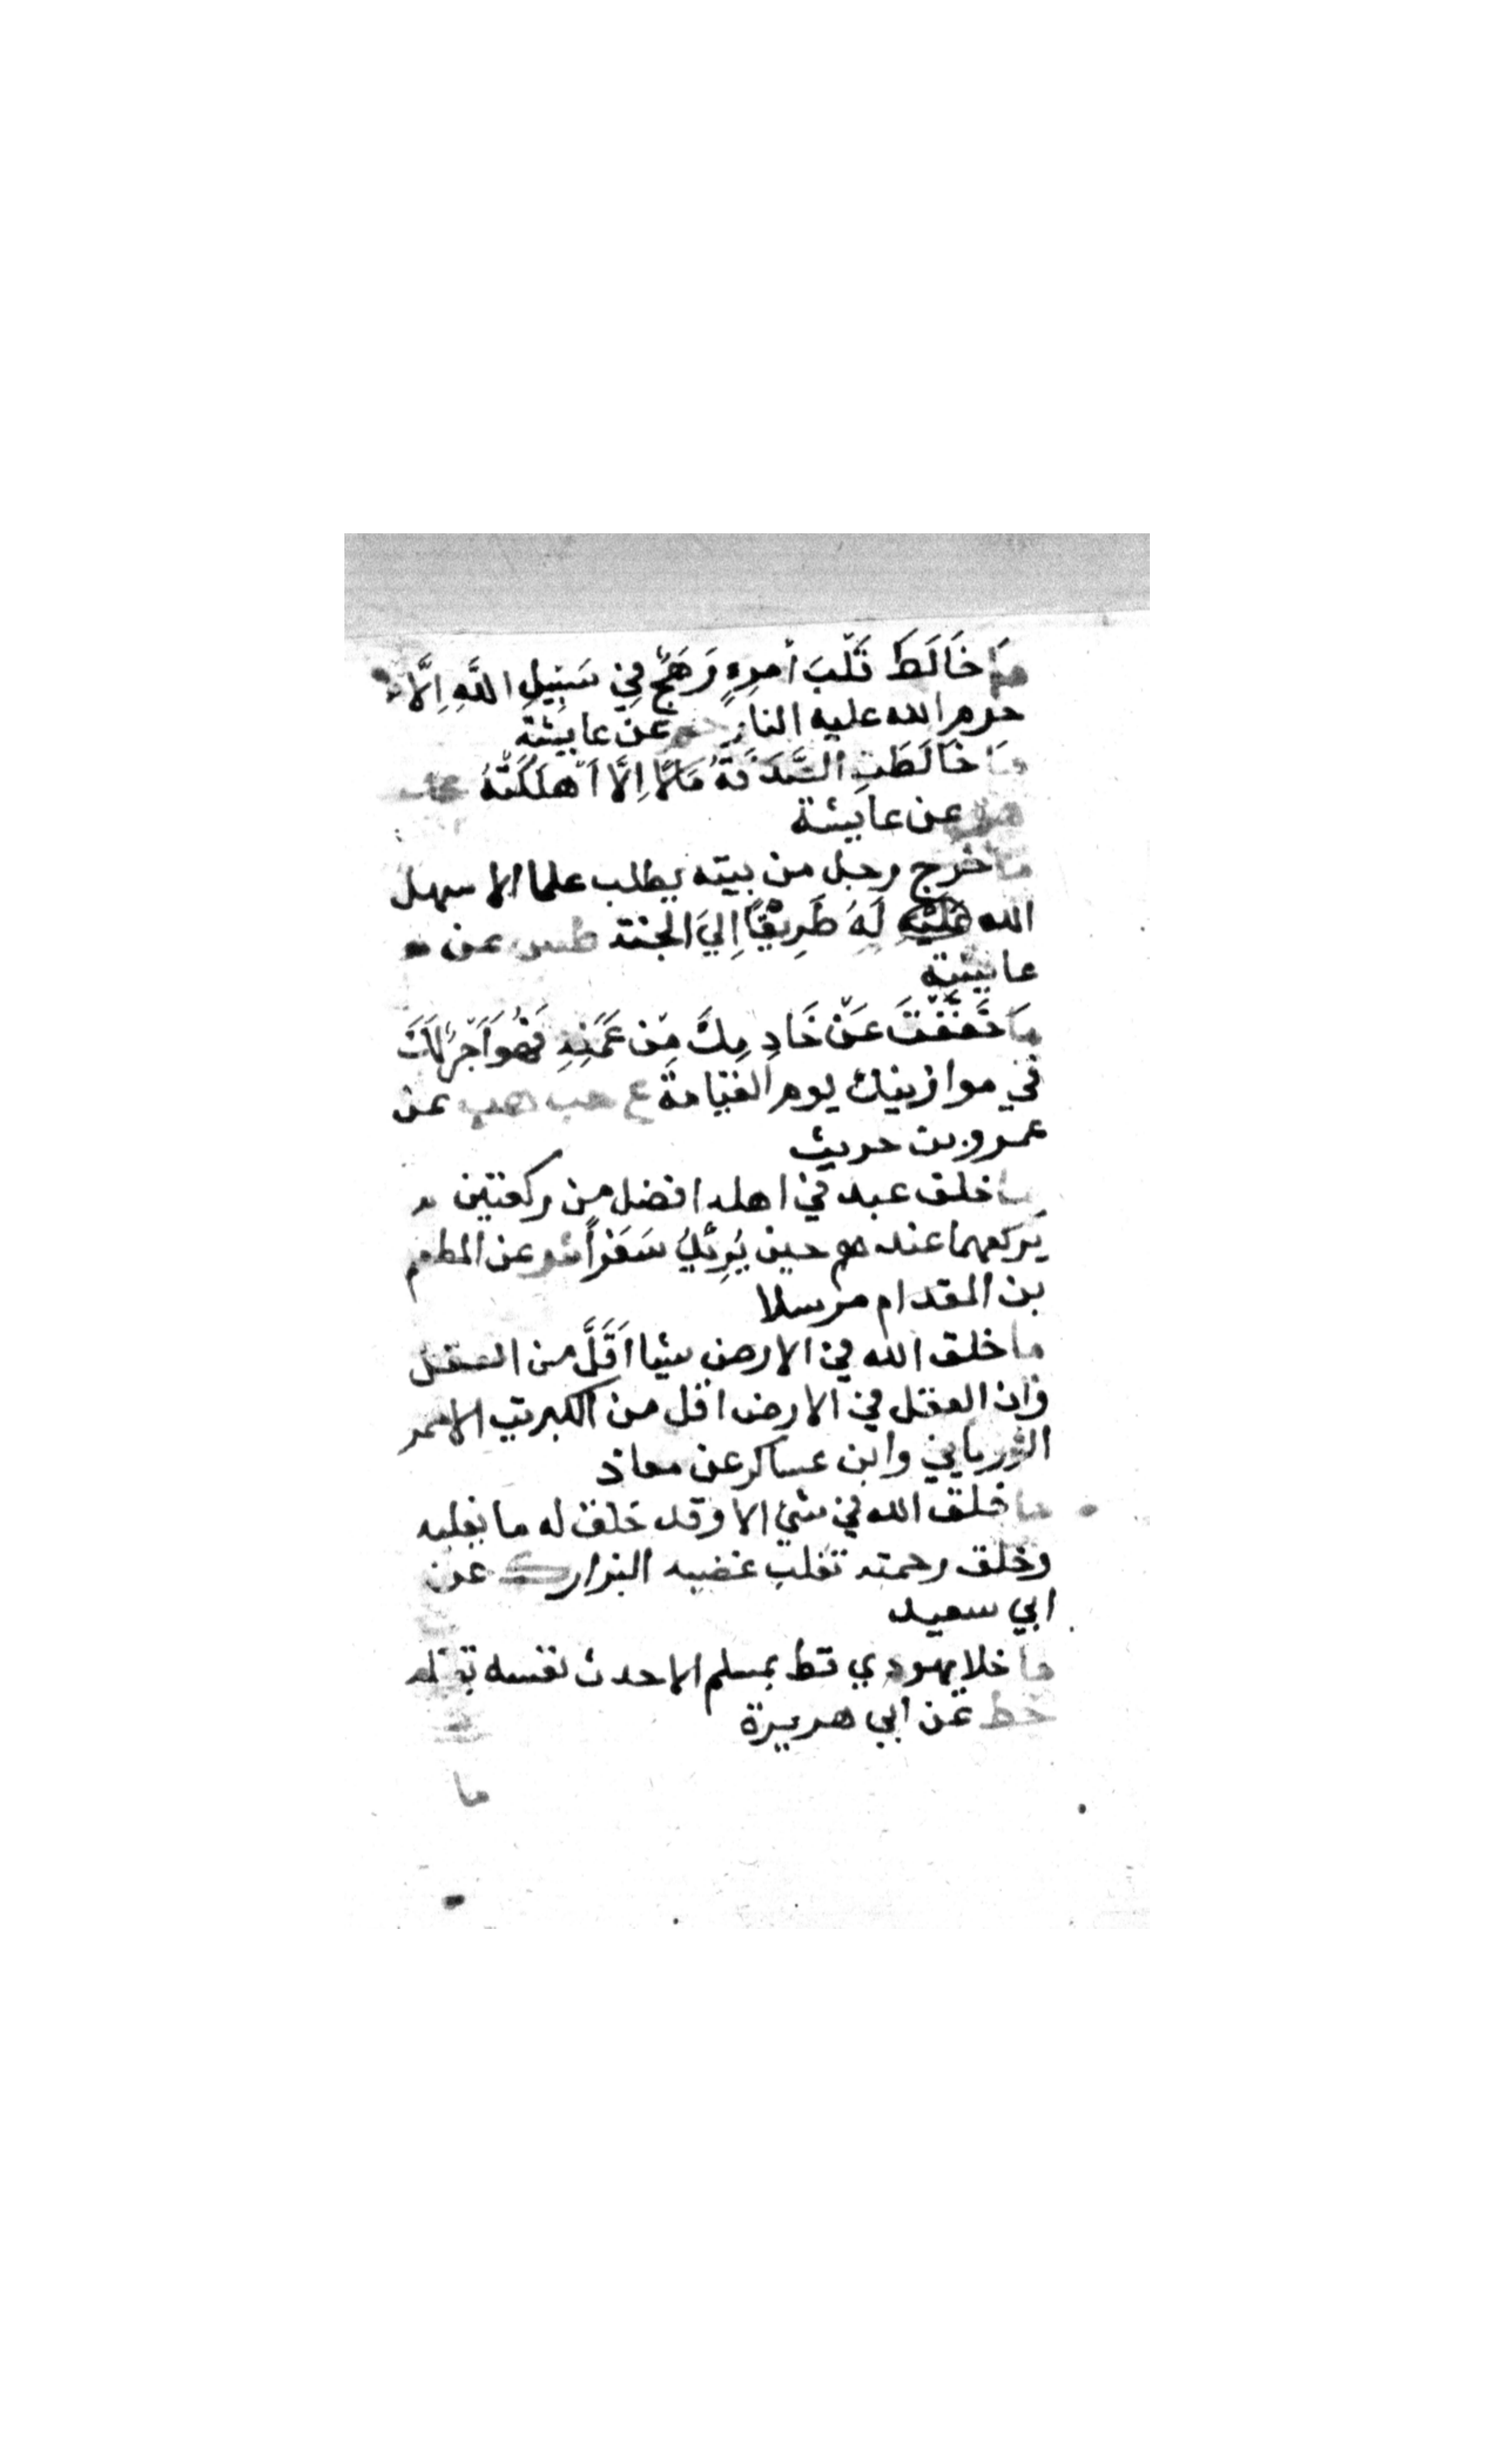 مَا خَالَطَ قَلْبَ أمرءٍ رَهَجٌ فِي سَبِيلِ اللَّهِ اِلَّا
حرم الله عليه النار حم عن عايشة
مَا خَالَطَتِ الصَّدَقَةُ مَالًا اِلَّا اَهْلَكَتْهُ
عن عايشة
ما خرج رجل من بيته يطلب علما الا سهل
الله لَهُ طَرِيْقًا اِلىَ الجنة طس عن
عايشة
مَا خَفَّفْتَ عَنْ خَادِمِكَ مِنْ عَمَلِهِ فَهُوَ اَجْرٌ لَكَ
في موازينك يوم القيامة ع حب هب عن
عمرو بن حريث
ما خلف عبد في اهله افضل من ركعتين
يَركعهما عندهم حين يُرِيْدُ سَفَراً ش عن المطعم
بن المقدام مرسلا
ما خلق الله في الارض شيا اَقَلَّ من العقل
وان العقل في الارض اقل من الكبريت الاحمر
الروياني وابن عساكر عن معاذ
ما خلق الله في شئ الا وقد خلق له ما يغلبه
وخلق رحمته تغلب غضبه البزار ك عن
ابي سعيد
ما خلا يهودي قط بمسلم الا حدث نفسه بقتله
خط عن ابي هريرة
ما